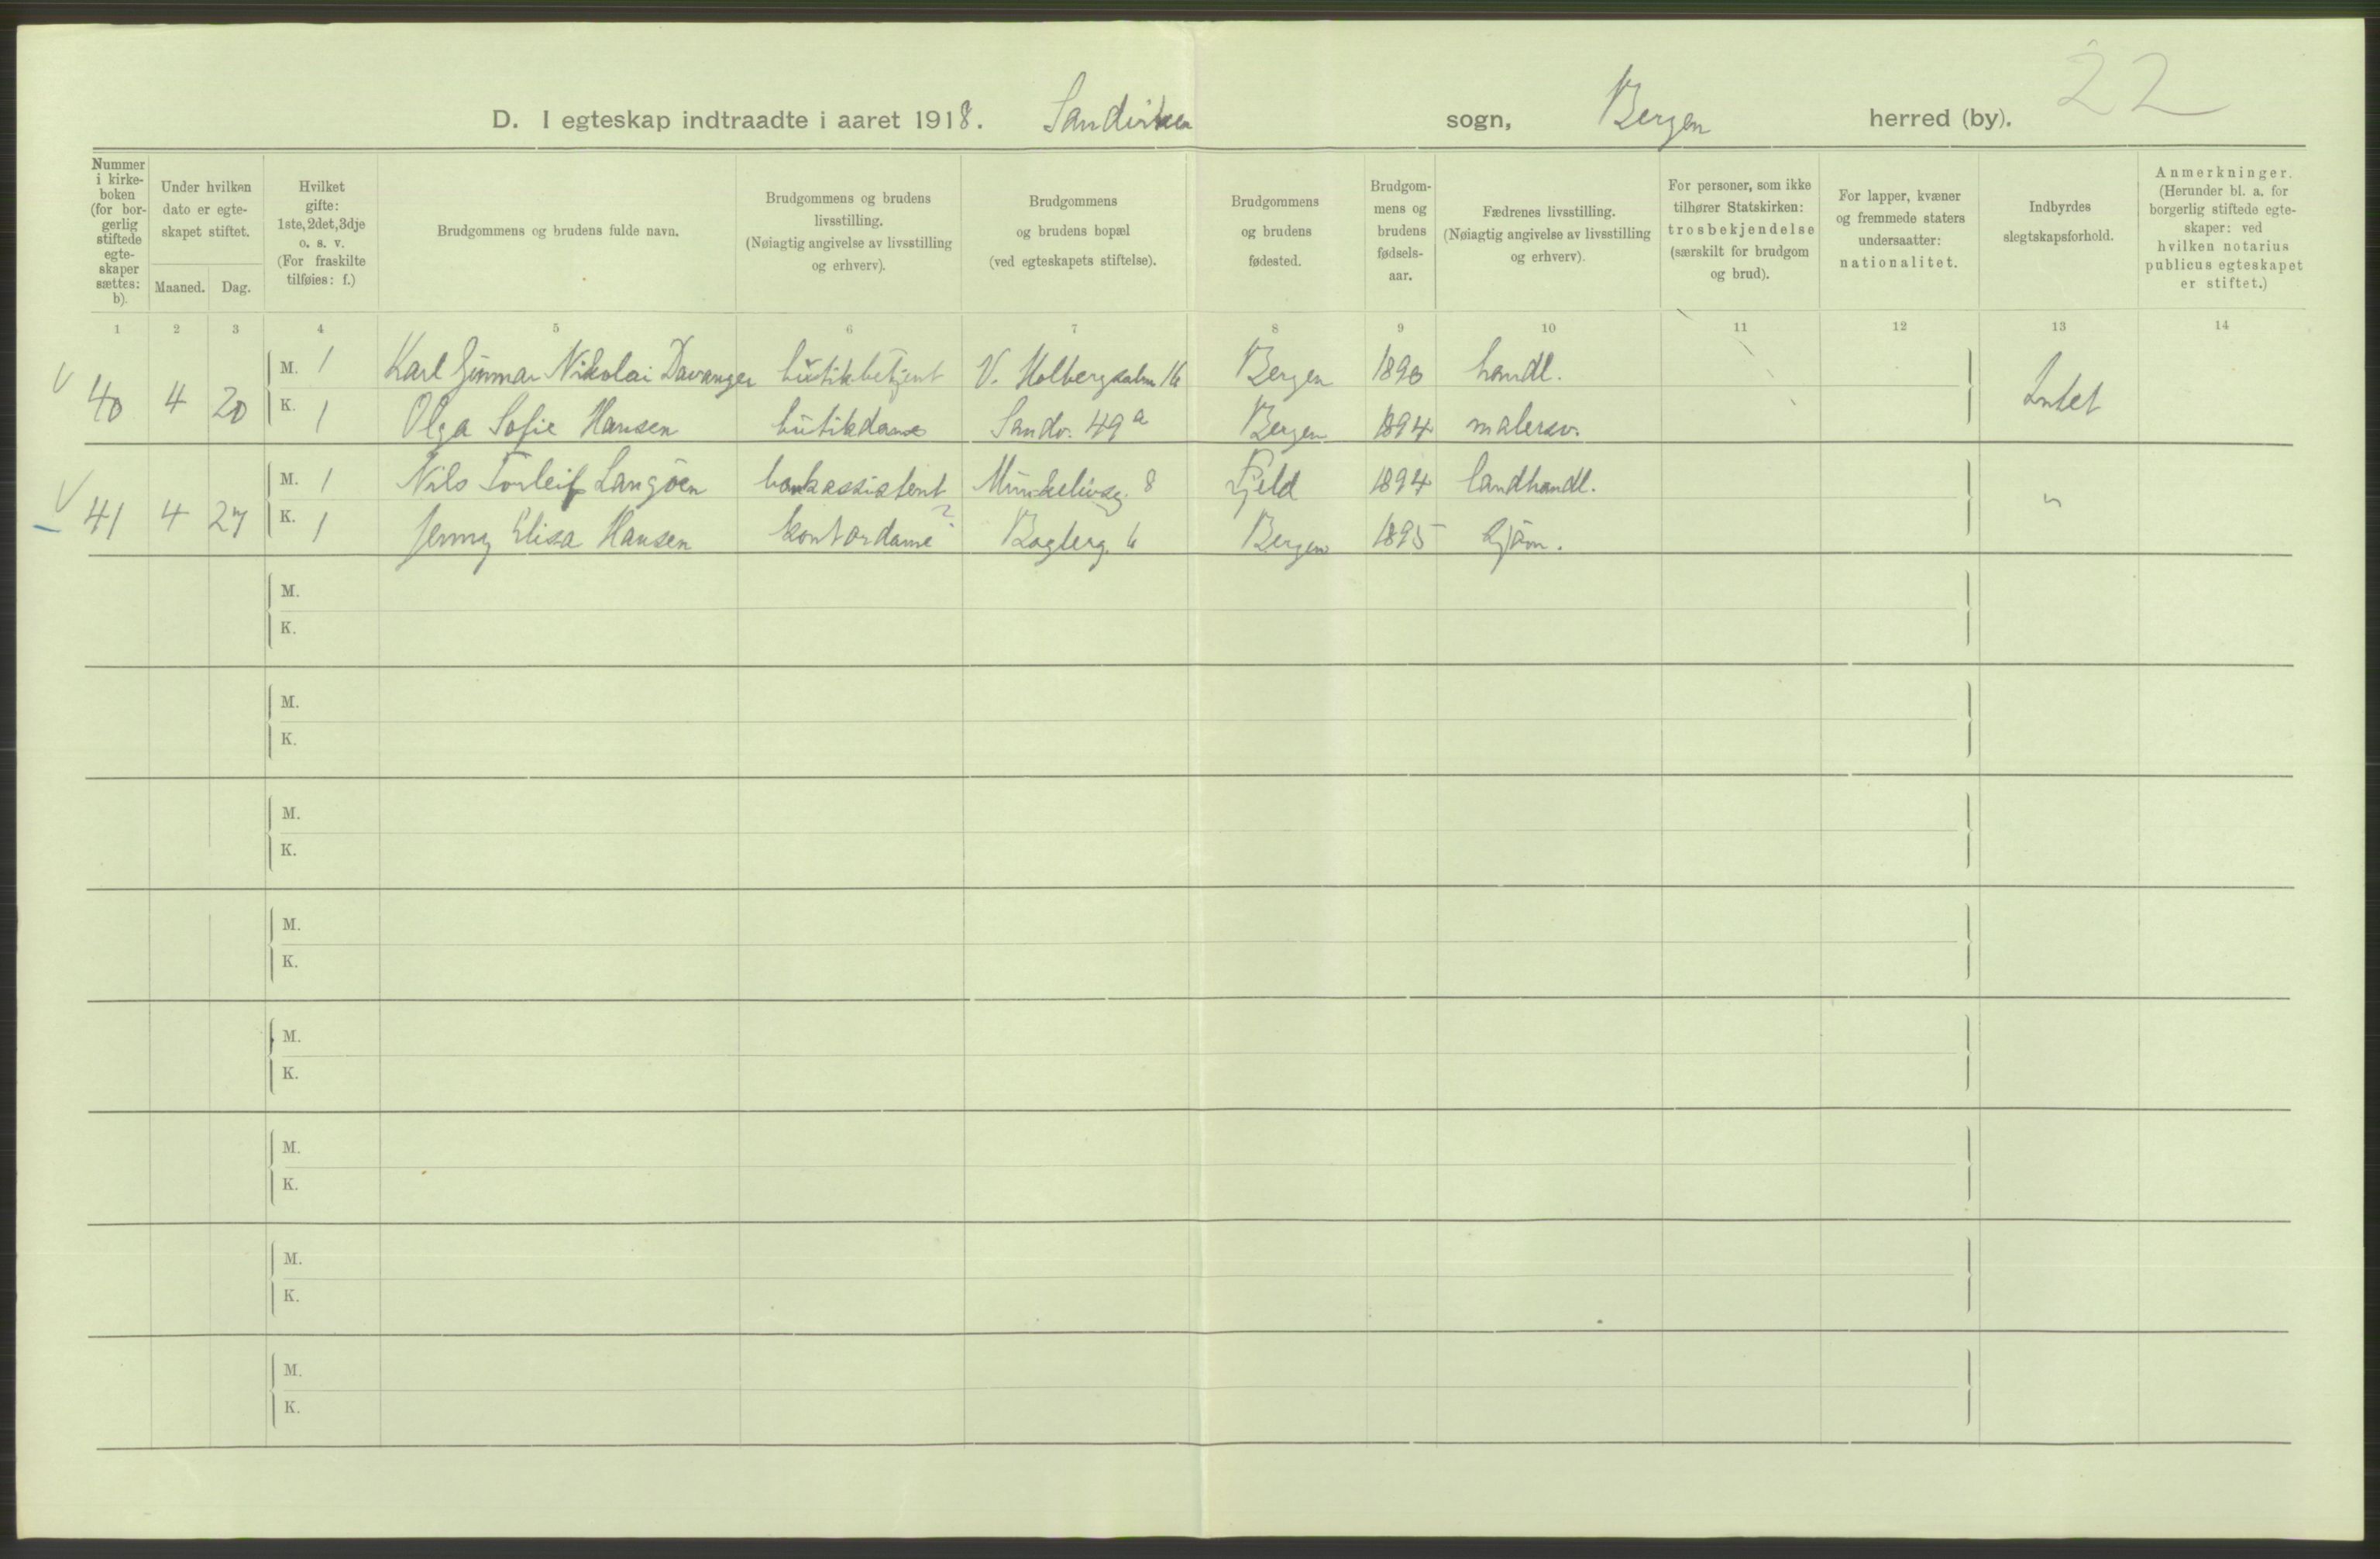 22
D. I egteskap indtraadte i aaret 1918. Sandviken sogn, Bergen herred (by).
Nummer i kirke-boken (for bor-gerlig stiftede egte-skaper sættes: b).
Under hvilken dato er egte-skapet stiftet.
Maaned. Dag.
Hvilket gifte: 1ste, 2det, 3dje o. s. v. (For fraskilte tilføies: f.)
Brudgommens og brudens fulde navn.
Brudgommens og brudens livsstilling. (Nøiagtig angivelse av livsstilling og erhverv).
Brudgommens og brudens bopæl (ved egteskapets stiftelse).
Brudgommens og brudens fødested.
Brudgom-mens og brudens fødsels-aar.
Fædrenes livsstilling. (Nøiagtig angivelse av livsstilling og erhverv).
For personer, som ikke tilhører Statskirken: trosbekjendelse (særskilt for brudgom og brud).
For lapper, kvæner og fremmede staters undersaatter: nationalitet.
Indbyrdes slegtskapsforhold.
Anmerkninger. (Herunder bl. a. for borgerlig stiftede egte-skaper: ved hvilken notarius publicus egteskapet er stiftet.)
1 2 3 4 5 6 7 8 9 10 11 12 13 14
40 4 20
M. 1 Karl Gunnar Nikolai Davanger butikbetjent V. Holbergsalm 16 Bergen 1890 handl.
Intet
K. 1 Olga Sofie Hansen butikdame Sandv. 49a Bergen 1894 malersv.
41 4 27
M. 1 Nils Torleif Langöen bankassistent Munkelivsg. 8 Fjeld 1894 landhandl.
"
K. 1 Jenny Elisa Hansen kontordame ? Bagleng. 6 Bergen 1895
M.
K.
M.
K.
M.
K.
M.
K.
M.
K.
M.
K.
M.
K.
M.
K.